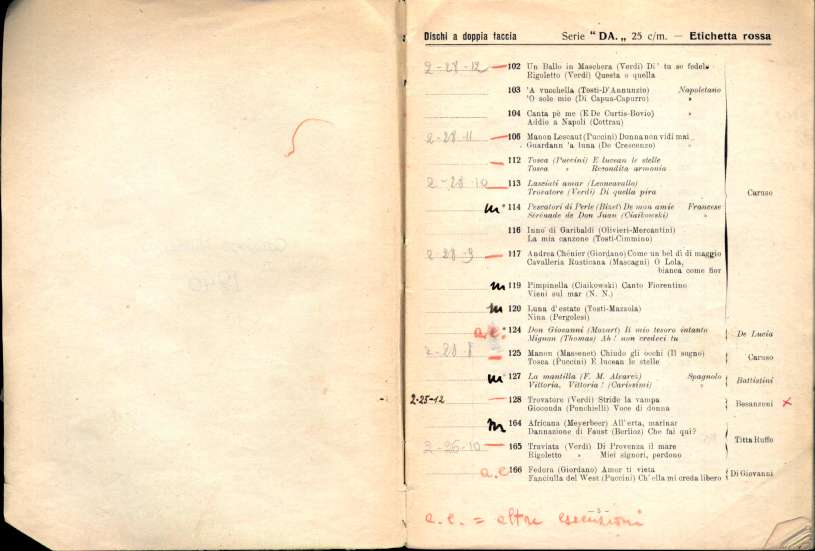 Dischi a doppia faccia Serie " DA. „ 25 c/m. — Etichetta rossa
2-28-12 — 102 Un Ballo in Maschera (Verdi) Di' tu se fedele
Rigoletto (Verdi) Questa o quella
103 'A vucchella (Tosti-D'Annunzio) Napoletano
'O sole mio (Di Capua-Capurro) »
104 Canta pè me (E De Curtis-Bovio) »
Addio a Napoli (Cottrau)
2-28-11 — 106 Manon Lescaut (Puccini) Donna non vidi mai
Guardann 'a luna (De Crescenzo) »
— 112 Tosca (Puccini) E lucean le stelle
Tosca » Recondita armonia
2-28-10 — 113 Lasciati amar (Leoncavallo)
Trovatore (Verdi) Di quella pira
Caruso
m * 114 Pescatori di Perle (Bizet) De mon amie Francese
Sérénade de Don Juan (Ciaikowski) »
116 Inno di Garibaldi (Olivieri-Mercantini)
La mia canzone (Tosti-Cimmino)
2-28-3 — 117 Andrea Chénier (Giordano) Come un bel dì di maggio
Cavalleria Rusticana (Mascagni) O Lola,
bianca come fior
m 119 Pimpinella (Ciaikowski) Canto Fiorentino
Vieni sul mar (N. N.)
m 120 Luna d'estate (Tosti-Mazzola)
Nina (Pergolesi)
a.e. * 124 Don Giovanni (Mozart) Il mio tesoro intanto
Mignon (Thomas) Ah! non credevi tu
De Lucia
2-28-8 — 125 Manon (Massenet) Chiudo gli occhi (Il sogno)
Tosca (Puccini) E lucean le stelle
Caruso
m * 127 La mantilla (F. M. Alvarez) Spagnolo
Vittoria, Vittoria! (Carissimi) »
Battistini
2-25-12 — 128 Trovatore (Verdi) Stride la vampa
Gioconda (Ponchielli) Voce di donna
Besanzoni x
m 164 Africana (Meyerbeer) All'erta, marinar
Dannazione di Faust (Berlioz) Che fai qui?
Titta Ruffo
2-26-10 — 165 Traviata (Verdi) Di Provenza il mare
Rigoletto » Miei signori, perdono
a.e 166 Fedora (Giordano) Amor ti vieta
Fanciulla del West (Puccini) Ch'ella mi creda libero
Di Giovanni
— 5 —
a.e. = altre esecuzioni